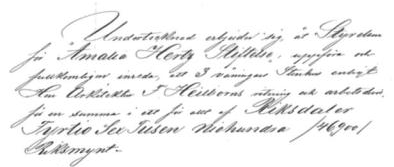 Undertecknad erbjuder sig åt Styrelsen
för "Amalia Hertz Stiftelse", uppföra och
fullkomligen inreda, ett 3 vånings Stenhus enligt
Herr Arkitekten F Heilborns ritning och arbetsbeskr.
för en summa i ett för allt af Riksdaler
Fyrtio Sex Tusen Niohundra /46,900/
Riksmynt.-